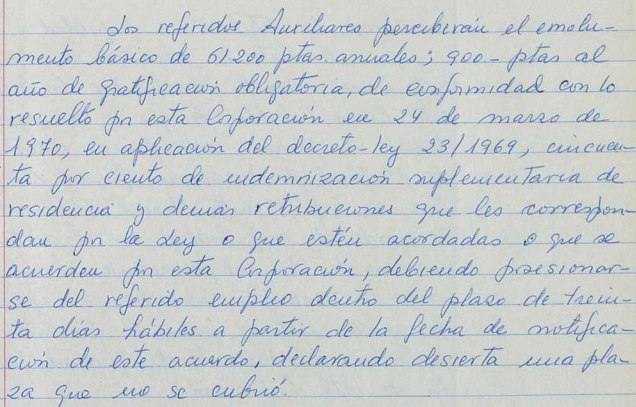 Los referidos Auxiliares percibirán el emolu-
mento básico de 61.200 ptas. anuales; 900.- ptas al
año de gratificación obligatoria, de conformidad con lo
resuelto por esta Corporación en 24 de marzo de
1970, en aplicación del decreto-ley 23/1969, cincuen-
ta por ciento de indemnización suplementaria de
residencia y demás retribuciones que les correspon-
dan por la Ley o que estén acordadas o que se
acuerden por esta Corporación, debiendo posesionar-
se del referido empleo dentro del plazo de trein-
ta días hábiles a partir de la fecha de notifica-
ción de este acuerdo, declarando desierta una pla-
za que no se cubrió.